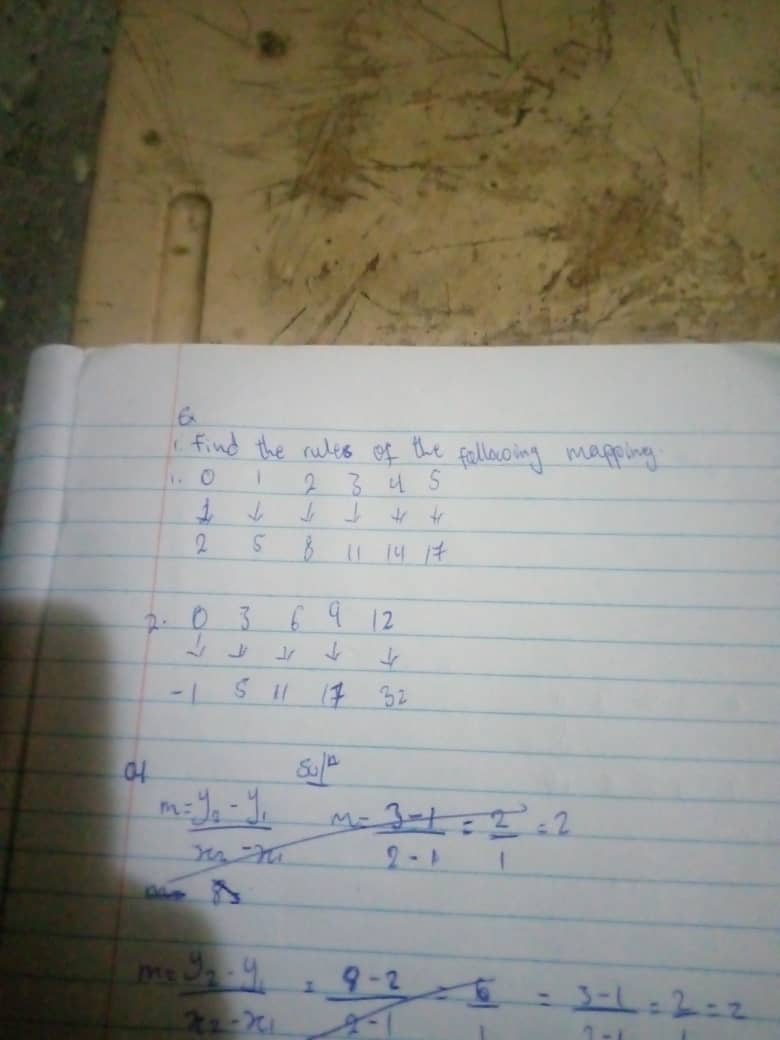 Q
1. Find the rules of the following mapping.
1. 0 1 2 3 4 5
↓ ↓ ↓ ↓ ↓ ↓
2 5 8 11 14 17
2. 0 3 6 9 12
↓ ↓ ↓ ↓ ↓
-1 5 11 17 32
01 Sol/n
m = y₂ - y₁ / x₂ - x₁ m = 3-1 / 2-1 = 2/1 = 2
m = y₂ - y₁ / x₂ - x₁ = 8-2 / 2-1 = 6/1 = 3-1 / 2-1 = 2/1 = 2